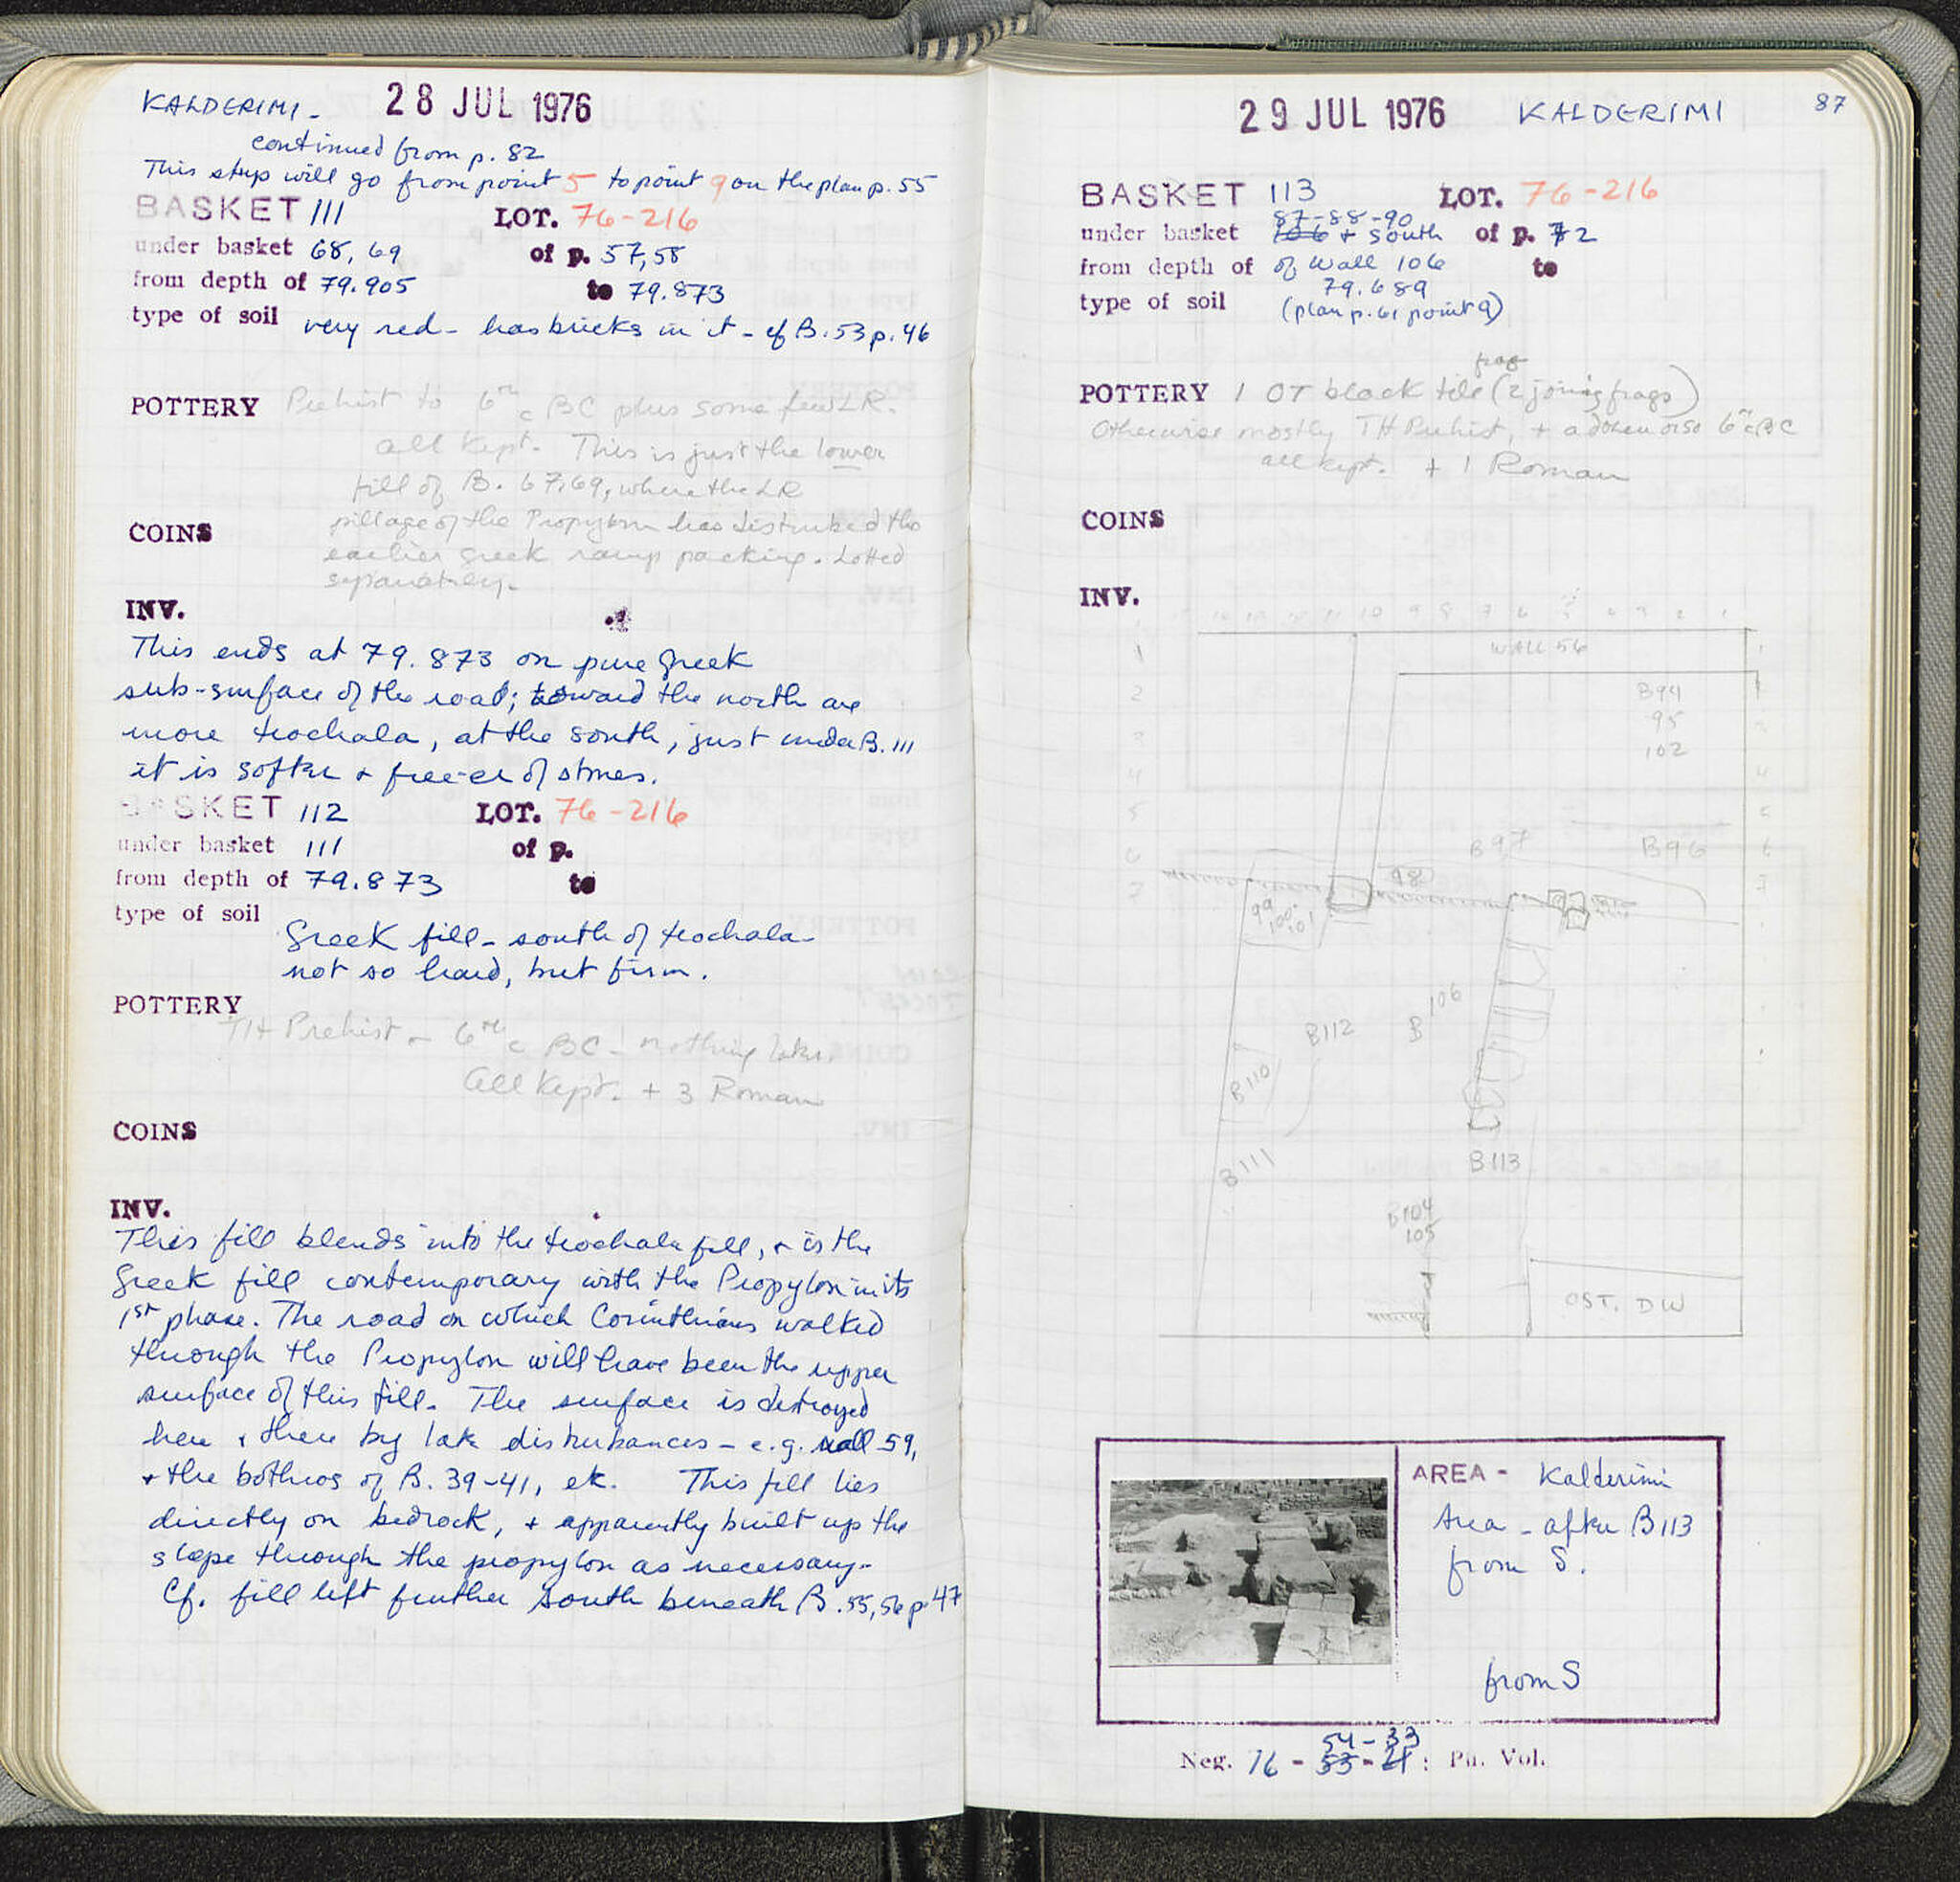 KALDERIMI - 28 JUL 1976
continued from p. 82
This strip will go from point 5 to point 9 on the plan p. 55
BASKET 111 LOT. 76-216
under basket 68, 69 of p. 57,58
from depth of 79.905 to 79.873
type of soil very red - has bricks in it - cf B.53 p.46
POTTERY Prehist to 6th c BC plus some few LR.
all kept. This is just the lower
fill of B. 67,69, where the LR
pillage of the Propylon has disturbed the
COINS
earlier Greek ramp packing. Lotted
separately.
INV.
This ends at 79.873 on pure Greek
sub-surface of the road; toward the north are
more trochala, at the south, just under B.111
it is softer + free-er of stones.
BASKET 112 LOT. 76-216
under basket 111 of p.
from depth of 79.873 to
type of soil
Greek fill - south of trochala
not so hard, but firm.
POTTERY
TH Prehist - 6th c BC - nothing later.
All kept. + 3 Roman
COINS
INV.
This fill blends into the trochala fill, + is the
Greek fill contemporary with the Propylon in its
1st phase. The road on which Corinthians walked
through the Propylon will have been the upper
surface of this fill. The surface is destroyed
here + there by late disturbances - e.g. wall 59,
+ the bothros of B. 39-41, etc. This fill lies
directly on bedrock, + apparently built up the
slope through the propylon as necessary.
Cf. fill left further south beneath B.55,56 p.47
29 JUL 1976 KALDERIMI 87
BASKET 113 LOT. 76-216
87-88-90
under basket 106 + south of p. 72
from depth of of Wall 106 to
79.689
type of soil (plan p.61 point 9)
frag
POTTERY 1 OT black tile (2 joining frags)
Otherwise mostly TH Prehist, + a dozen or so 6th c BC
all kept. + 1 Roman
COINS
INV.
WALL 56
B94
95
102
B97 B96
98
99
100
101
B112 B 106
B110
B111 B113
B104
105
OST. DW
AREA - Kalderimi
Area - after B113
from S.
from S
54-33
Neg. 76 - 53-21 : Ph. Vol.